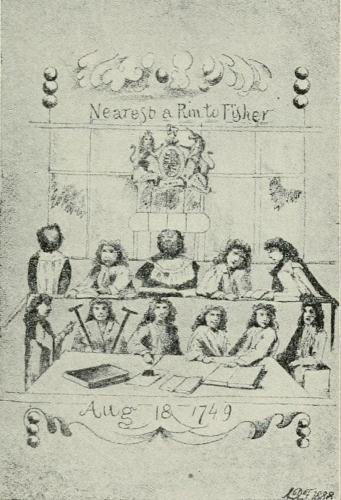 Nearest a Pin to Fisher
Aug 18 1749